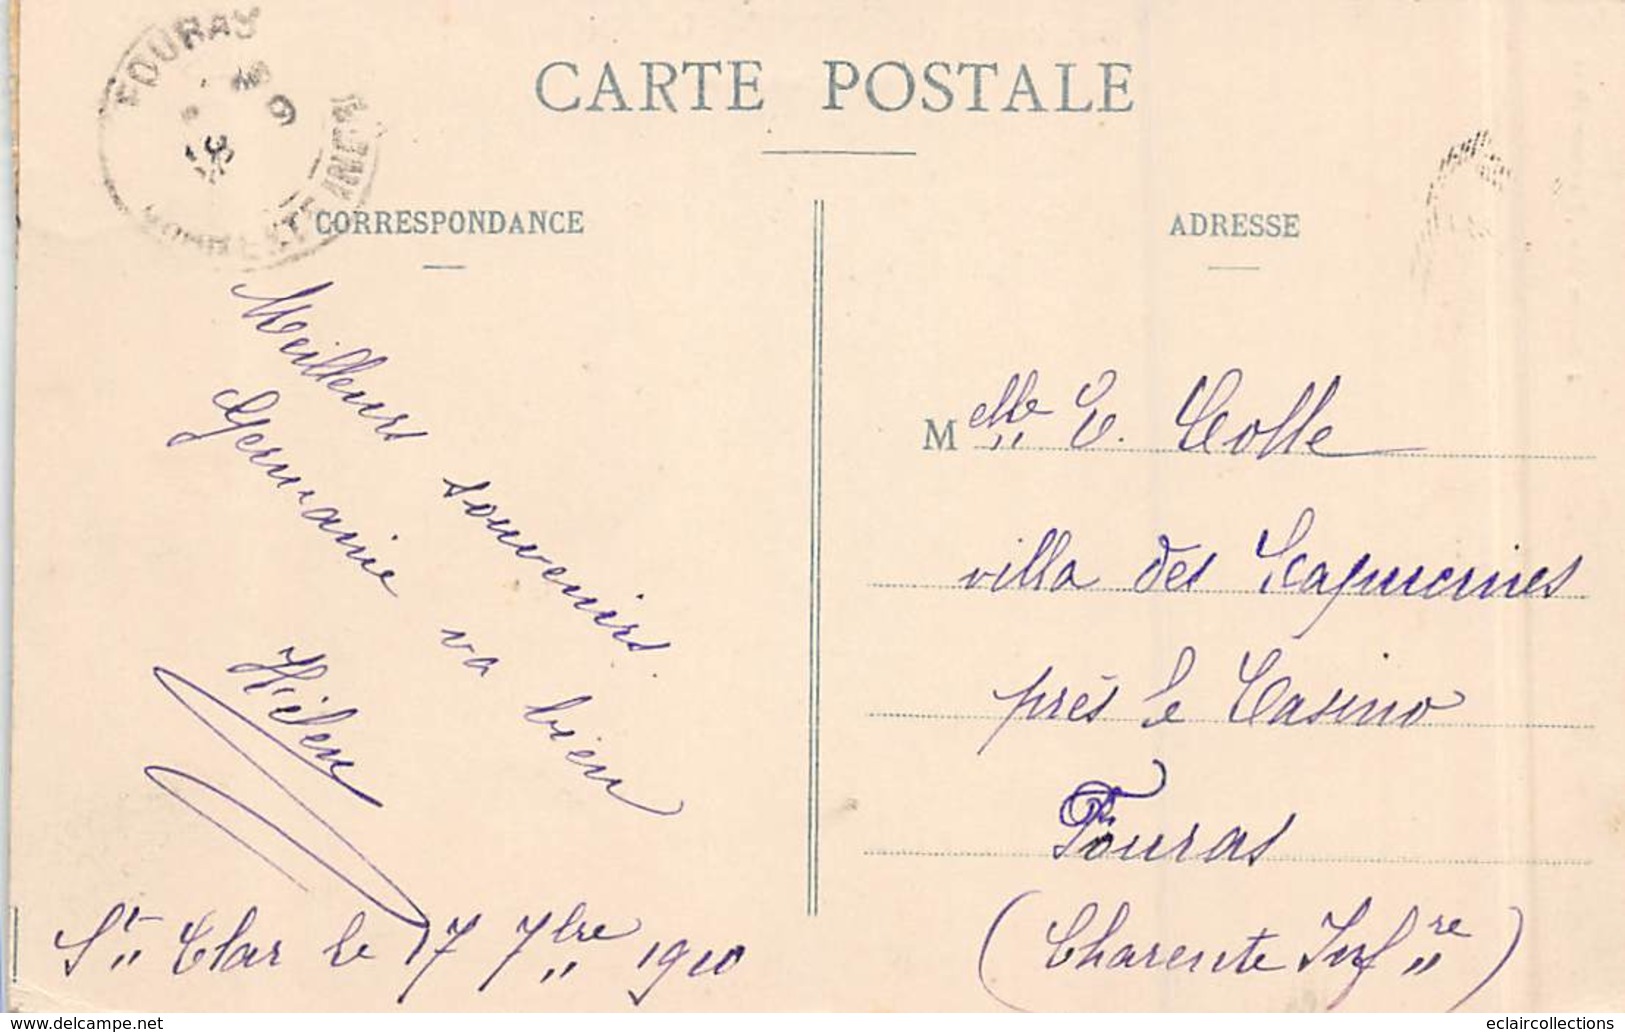 CARTE POSTALE
CORRESPONDANCE
ADRESSE
FOURAS
Meilleurs souvenirs.
Germaine va bien
Hélène
St Clar le 17 7bre 1910
Melle E. Colle
villa des Capucines
près le Casino
Fouras
(Charente Infre)
www.delcampe.net
eclaircollections